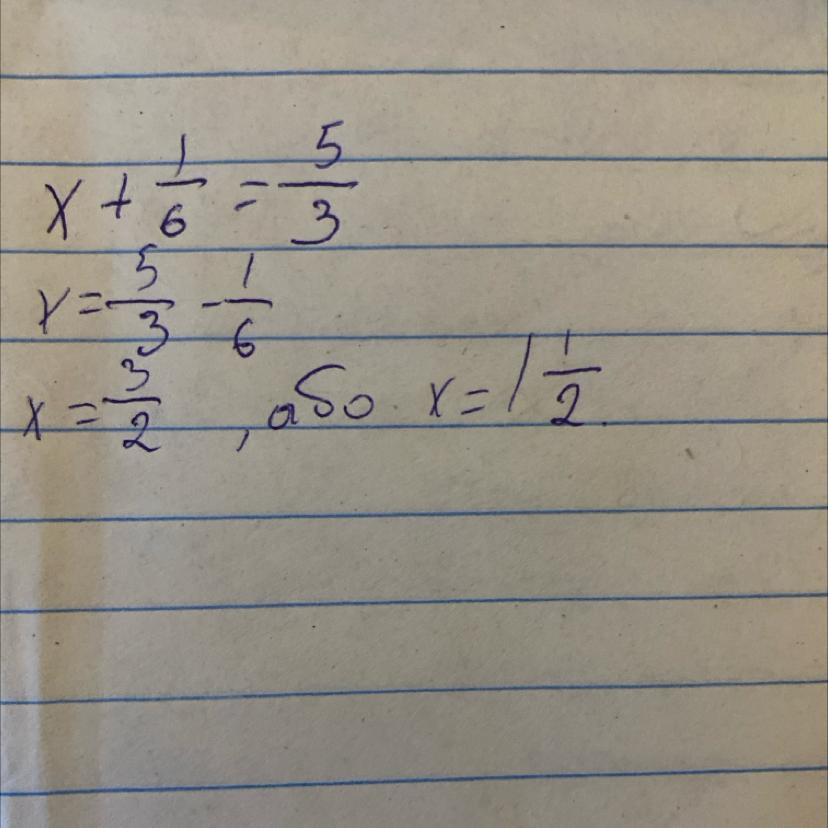 x + 1/6 = 5/3
x = 5/3 - 1/6
x = 3/2 , або x = 1 1/2.